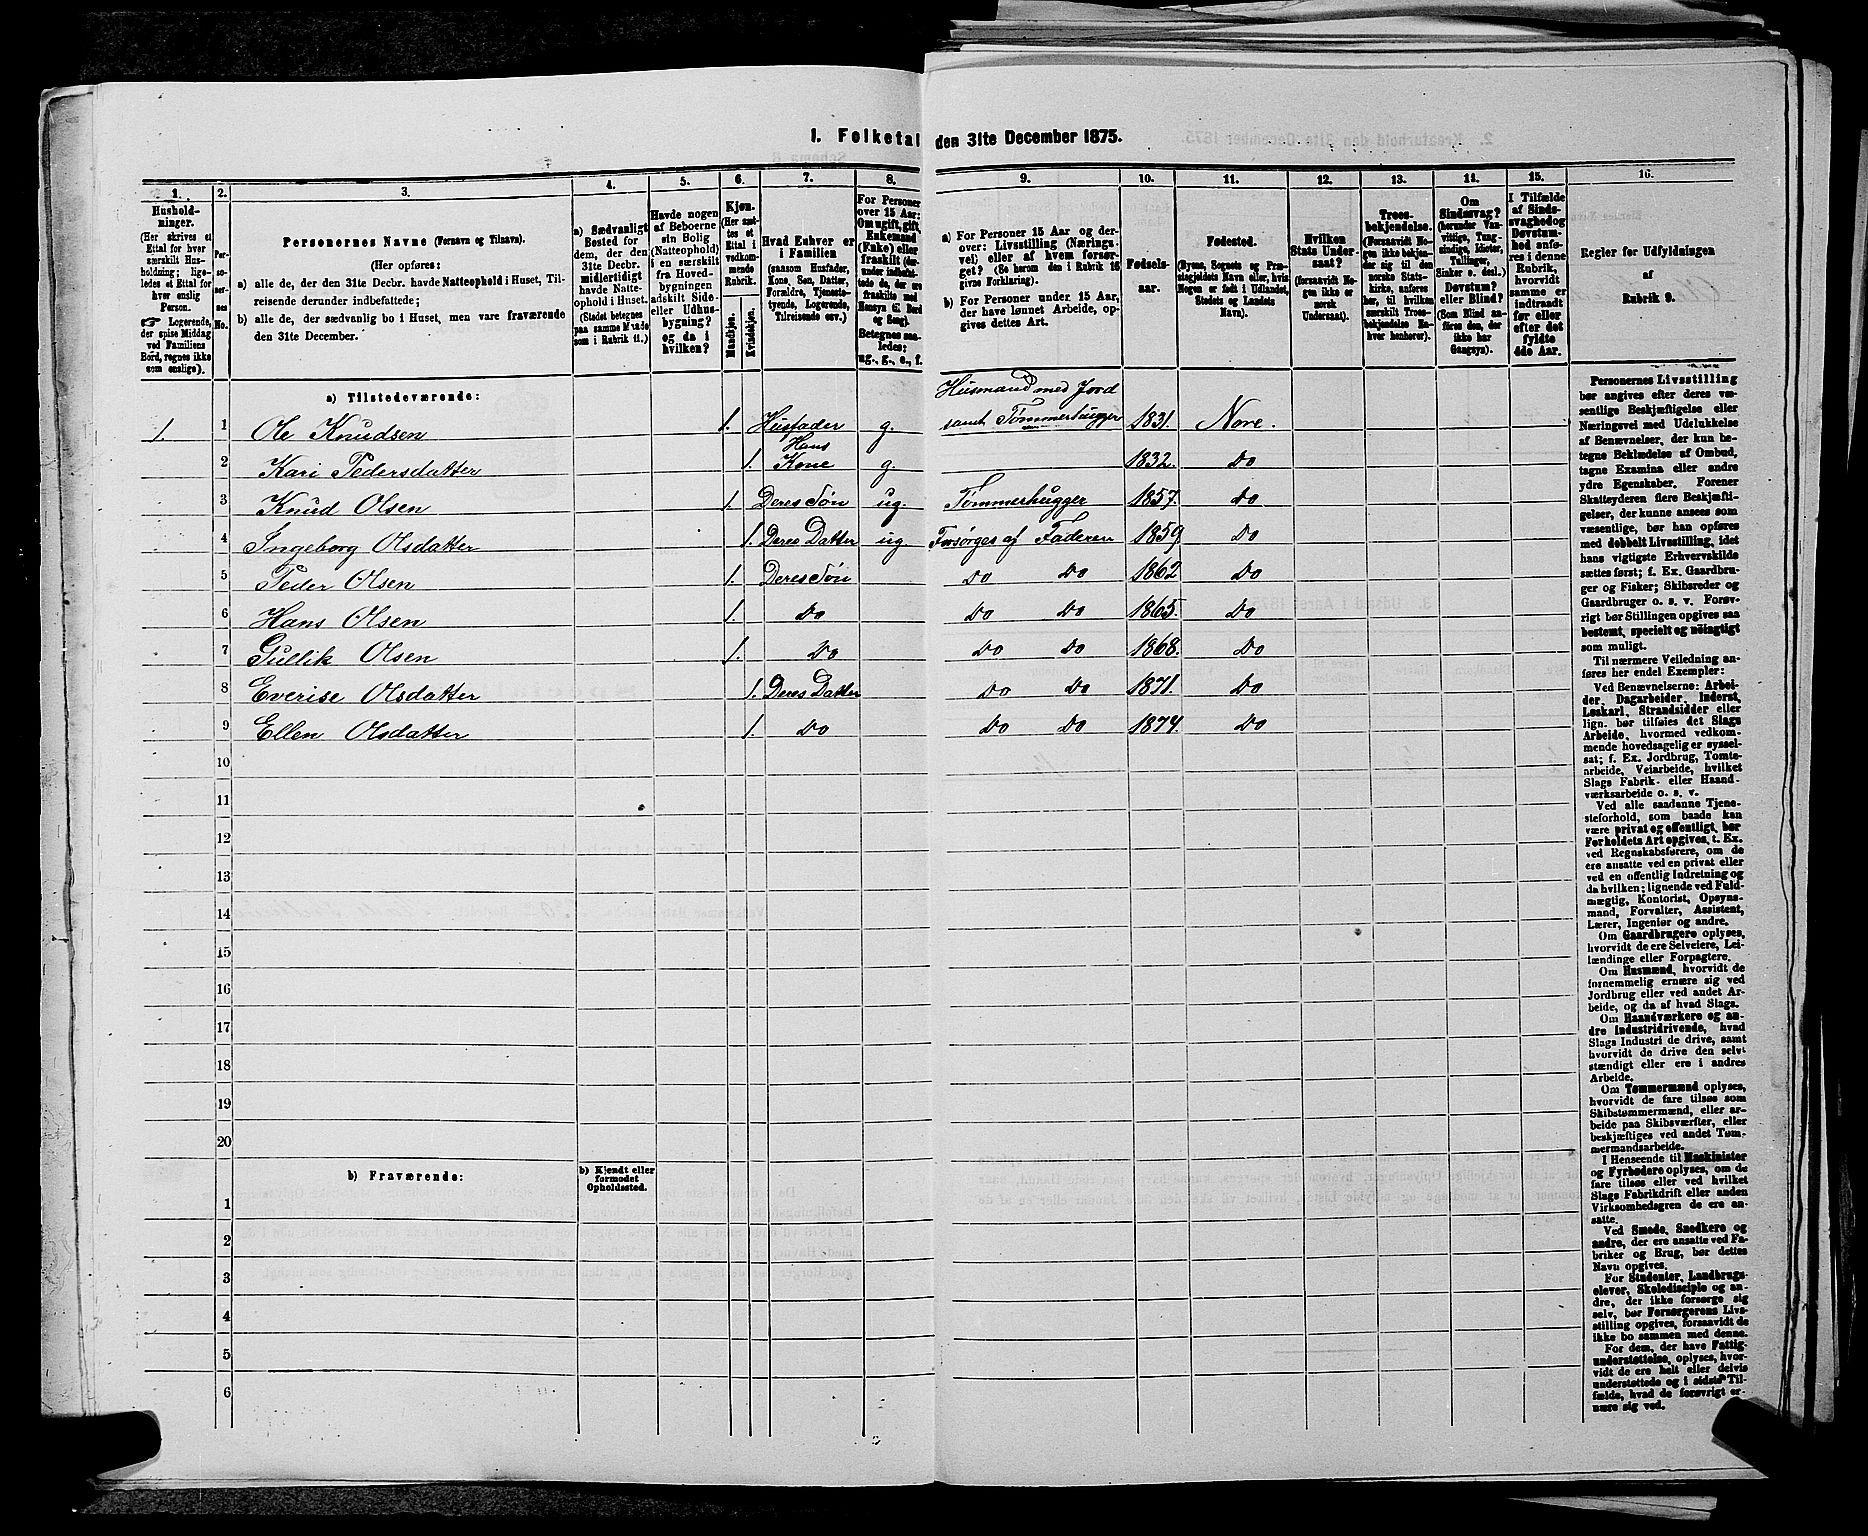 1. Folketal den 31te December 1875.
1. 2. 3. 4. 5. 6. 7. 8. 9. 10. 11. 12. 13. 14. 15. 16.
Hushold-
ninger.
(Her skrives et
Ettal for hver
særskilt Hus-
holdning; lige-
ledes et Ettal for
hver enslig
Person.
☞ Logerende,
der spise Middag
ved Familiens
Bord, regnes ikke
som enslige).
Per-
so-
ner-
nes
No.
Personernes Navne (Fornavn og Tilnavn).
(Her opføres:
a) alle de, der den 31te Decbr. havde Natteophold i Huset, Til-
reisende derunder indbefattede;
b) alle de, der sædvanlig bo i Huset, men vare fraværende
den 31te December.
a) Sædvanligt
Bosted for
dem, der den
31te Decbr.
midlertidigt
havde Natte-
ophold i Huset.
(Stedet betegnes
paa samme Maade
som i Rubrik 11.)
Havde nogen
af Beboerne
sin Bolig
(Natteophold)
i en særskilt
fra Hoved-
bygningen
adskilt Side-
eller Udhus-
bygning?
og da i
hvilken?
Kjøn.
(Her sæt-
tes et
Ettal i
vedkom-
mende
Rubrik.
Mandkjøn.
Kvindekjøn.
Hvad Enhver er
i Familien
(saasom Husfader,
Kone, Søn, Datter,
Forældre, Tjeneste-
tyende, Logerende,
Tilreisende osv.)
For Personer
over 15 Aar:
Om ugift, gift,
Enkemand
(Enke) eller
fraskilt (der-
under indbefat-
tede de, der ere
fraskilte med
Hensyn til Bord
og Seng).
Betegnes saa-
ledes:
ug., g., e., f.
a) For Personer 15 Aar og der-
over: Livsstilling (Nærings-
vei) eller af hvem forsør-
get? (Se herom den i Rubrik 16
givne Forklaring).
b) For Personer under 15 Aar,
der have lønnet Arbeide, op-
gives dettes Art.
Fødsels-
aar.
Fødested.
(Byens, Sognets og Præ-
stegjeldets Navn eller, hvis
Nogen er født i Udlandet,
Stedets og Landets
Navn).
Hvilken
Stats Under-
saat?
(forsaavidt No-
gen ikke er
norsk
Undersaat).
Troes-
bekjendelse.
(Forsaavidt No-
gen ikke bekjen-
der sig til den
norske Stats-
kirke, anføres
her, til hvilken
særskilt Troes-
bekjendelse En-
hver henhører).
Om
Sindssvag?
(herunder Van-
vittige, Tung-
sindige, Idioter,
Tullinger,
Sinker o. desl.)
Døvstum?
eller Blind?
(Som Blind an-
føres den, der
ikke har
Gangsyn).
I Tilfælde
af Sinds-
svaghed og
Døvstum-
hed anfø-
res i denne
Rubrik,
hvorvidt
samme er
indtraadt
før eller
efter det
fyldte
4de Aar.
Regler for Udfyldningen
af
Rubrik 9.
a) Tilstedeværende:
Husmand med Jord
1. 1 Ole Knudsen 1. Husfader g. samt Tømmerhugger 1831. Nore.
2 Kari Pedersdatter 1. Hans Kone g. 1832. Do
3 Knud Olsen 1. Deres Søn ug. Tømmerhugger 1857. Do
4 Ingeborg Olsdatter 1. Deres Datter ug Forsørges af Faderen 1859 Do
5 Peder Olsen 1. Deres Søn Do Do 1862 Do
6 Hans Olsen 1. Do Do Do 1865. Do
7 Gullik Olsen 1. Do Do Do 1868. Do
8 Everise Olsdatter 1. Deres Datter Do Do 1871. Do
9 Ellen Olsdatter 1. Do Do Do 1874. Do
10
11
12
13
14
15
16
17
18
19
20
b) Fraværende:
b) Kjendt eller
formodet
Opholdssted.
1
2
3
4
5
6
Personernes Livsstilling
bør angives efter deres væ-
sentlige Beskjæftigelse eller
Næringsvei med Udelukkelse
af Benævnelser, der kun be-
tegne Beklædelse af Ombud,
tagne Examina eller andre
ydre Egenskaber. Forener
Skatteyderen flere Beskjæfti-
gelser, der kunne ansees som
væsentlige, bør han opføres
med dobbelt Livsstilling, idet
hans vigtigste Erhvervskilde
sættes først; f. Ex. Gaardbru-
ger og Fisker; Skibsreder og
Gaardbruger o. s. v. Forøv-
rigt bør Stillingen opgives saa
bestemt, specielt og nöiagtigt
som muligt.
Til nærmere Veiledning an-
føres her endel Exempler:
Ved Benævnelserne: Arbei-
der, Dagarbeider, Inderst,
Løskarl, Strandsidder eller
lign. bør tilføies det Slags
Arbeide, hvormed vedkom-
mende hovedsagelig er syssel-
sat; f. Ex. Jordbrug, Tomte-
arbeide, Veiarbeide, hvilket
Slags Fabrik- eller Haand-
værksarbeide o. s. v.
Ved alle saadanne Tjene-
steforhold, som baade kan
være privat og offentligt, bør
Forholdets Art opgives, t. Ex.
ved Regnskabsførere, om de
ere ansatte ved en privat eller
ved en offentlig Indretning og
da hvilken; lignende ved Fuld-
mægtig, Kontorist, Opsyns-
mand, Forvalter, Assistent,
Lærer, Ingeniør og andre.
Om Gaardbrugere oplyses,
hvorvidt de ere Selveiere, Lei-
lændinge eller Forpagtere.
Om Husmænd, hvorvidt de
fornemmelig ernære sig ved
Jordbrug eller ved andet Ar-
beide, og da af hvad Slags.
Om Haandværkere og an-
dre Industridrivende, hvad
Slags Industri de drive, samt
hvorvidt de drive den selv-
stændigt eller ere i andres
Arbeide.
Om Tømmermænd oplyses,
hvorvidt de fare tilsøs som
Skibstømmermænd, eller ar-
beide paa Skibsværfter, eller
beskjæftiges ved andet Tøm-
mermandsarbeide.
I Henseende til Maskinister
og Fyrbødere oplyses, om de
fare tilsøs eller ved hvilket
Slags Fabrikdrift eller anden
Virksomhedsgren de ere an-
satte.
Ved Smede, Snedkere og
andre, der ere ansatte ved Fa-
briker og Brug, bør dettes
Navn opgives.
For Studenter, Landbrugs-
elever, Skoledisciple og an-
dre, der ikke forsørge sig
selv, bør Forsørgerens Livs-
stilling opgives, forsaavidt de
ikke bo sammen med denne.
For dem, der have Fattig-
understøttelse, oplyses, hvor-
vidt de ere helt eller delvis
understøttede og i sidste Til-
fælde, hvad de forøvrigt er-
nære sig ved.